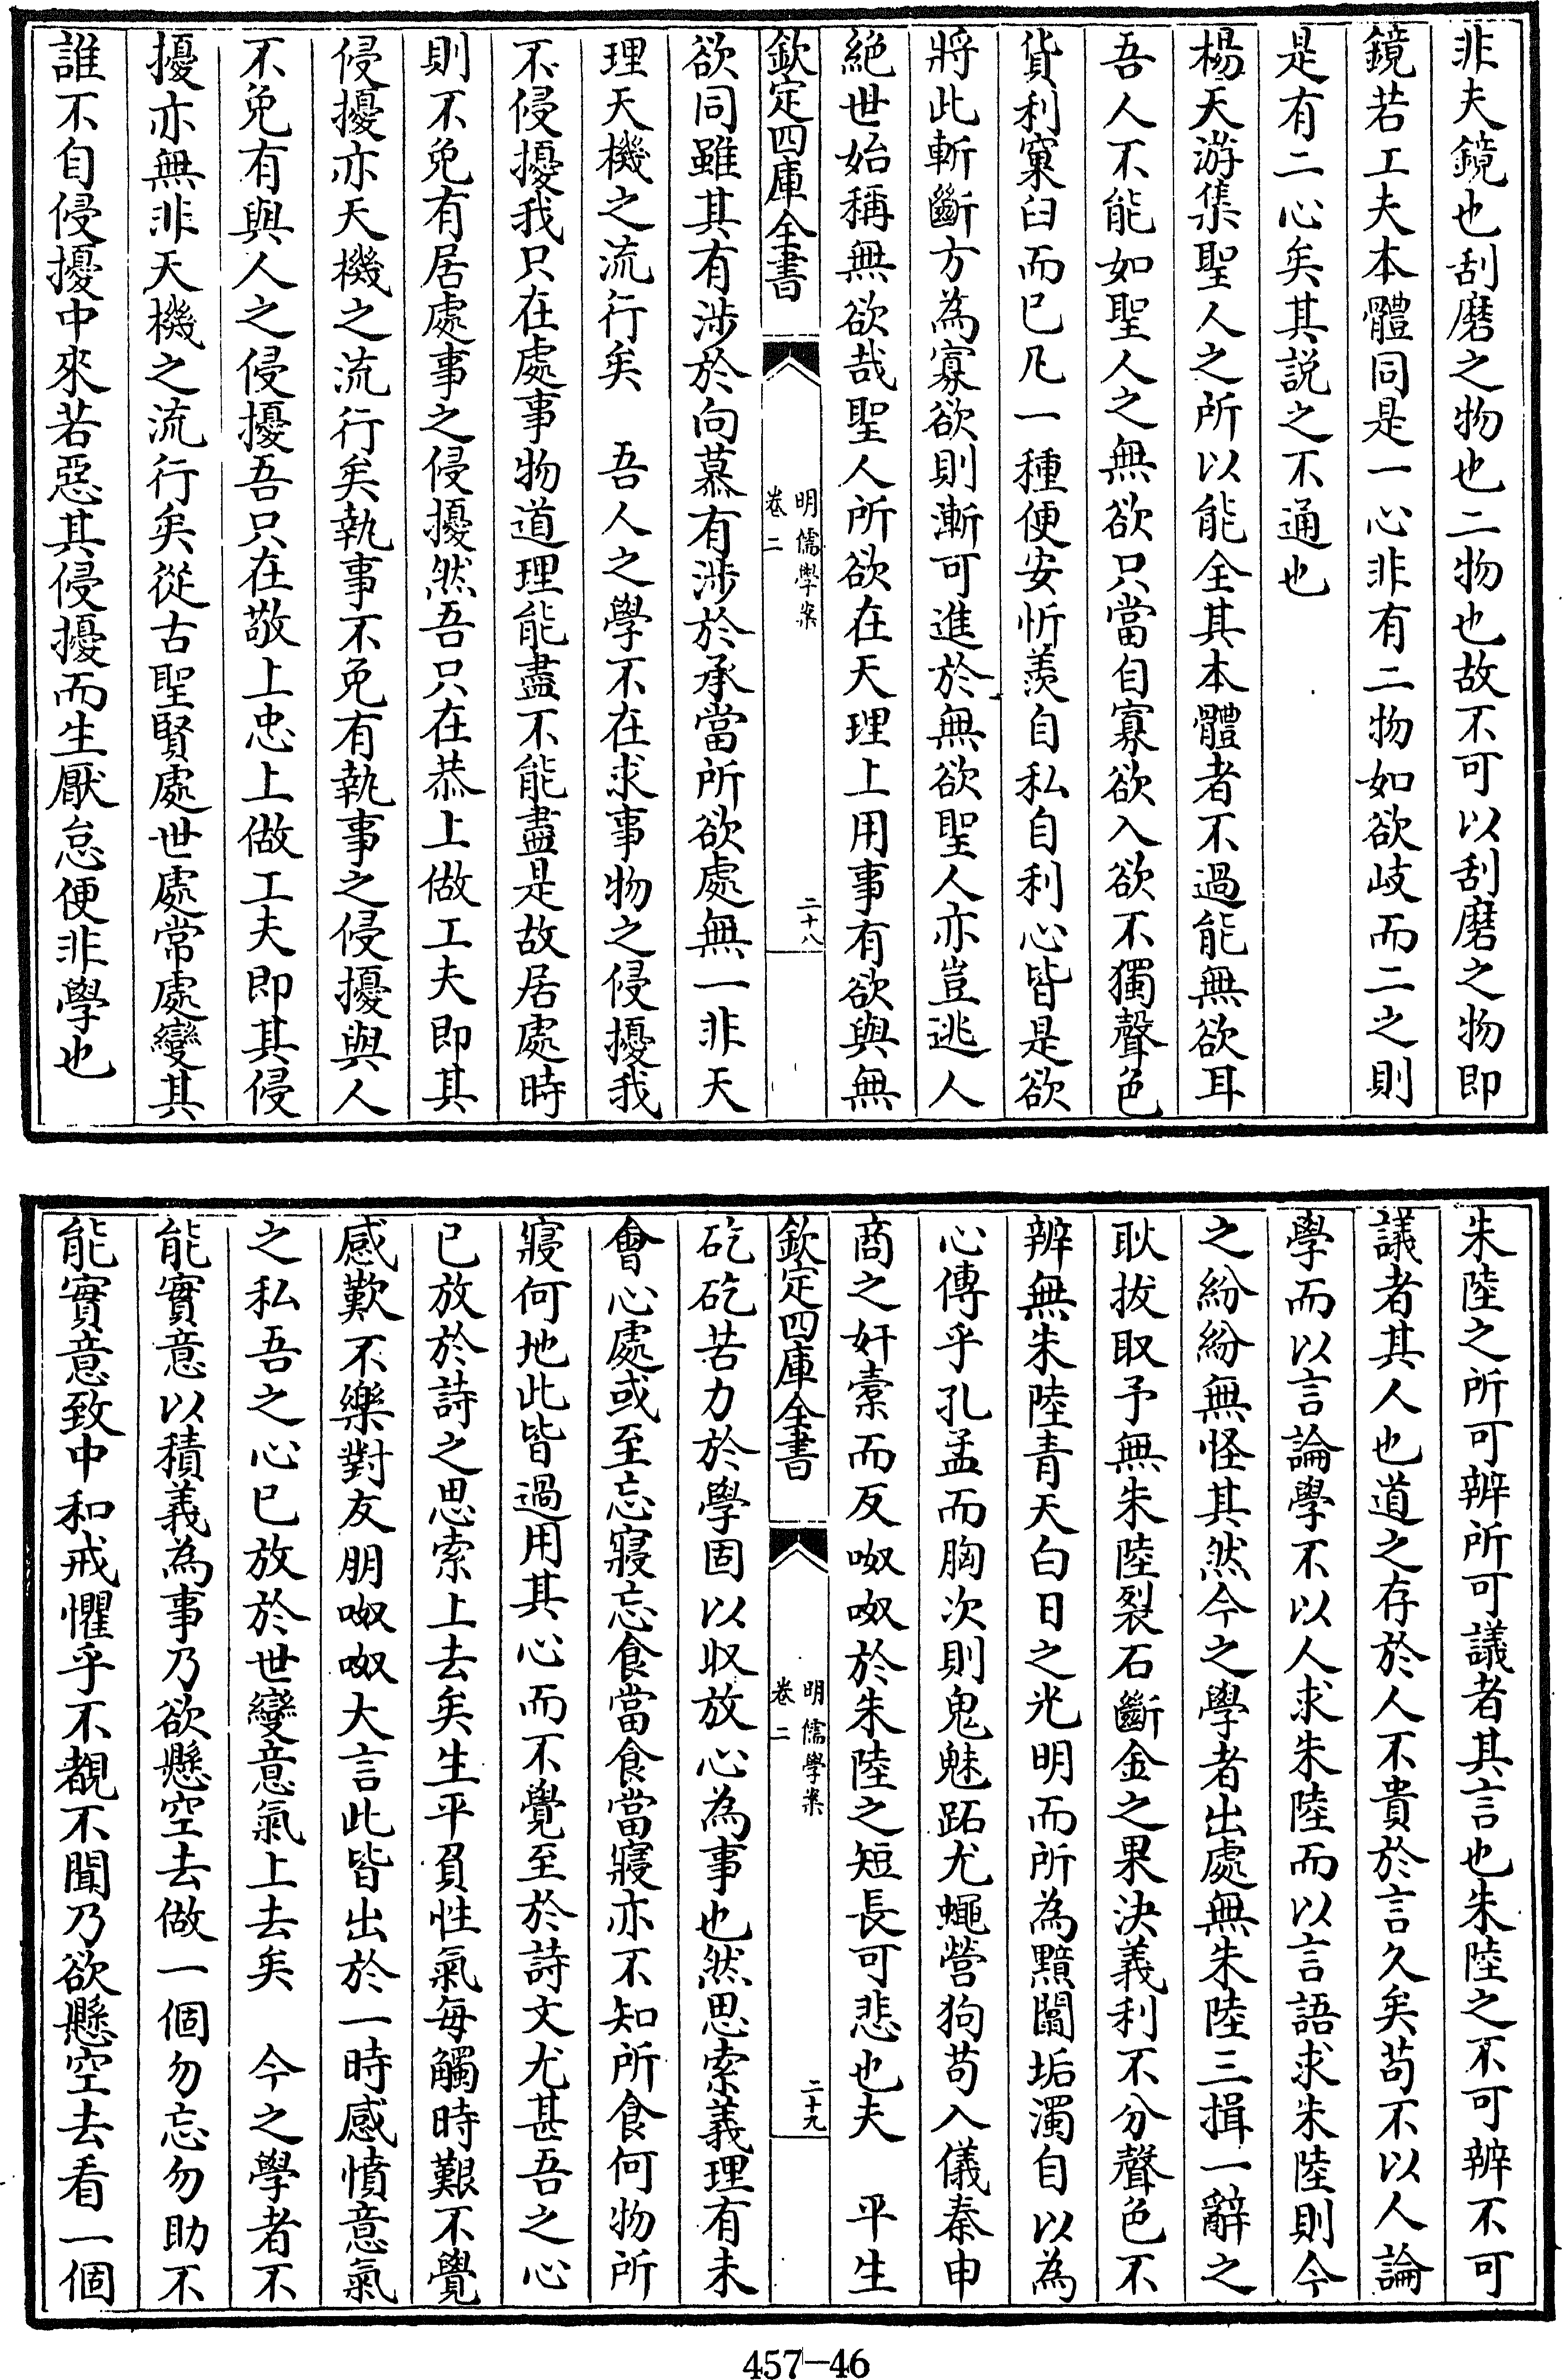 非夫鏡也刮磨之物也二物也故不可以刮磨之物即
鏡若工夫本體同是一心非有二物如欲歧而二之則
是有二心矣其説之不通也
楊天游集聖人之所以能全其本體者不過能無欲耳
吾人不能如聖人之無欲只當自寡欲入欲不獨聲色
貨利窠臼而已凡一種便安忻羨自私自利心皆是欲
將此斬斷方為寡欲則漸可進於無欲聖人亦豈逃人
絶世始稱無欲哉聖人所欲在天理上用事有欲與無
欽定四庫全書
明儒學案
卷二
二十八
欲同雖其有涉於向慕有涉於承當所欲處無一非天
理天機之流行矣　吾人之學不在求事物之侵擾我
不侵擾我只在處事物道理能盡不能盡是故居處時
則不免有居處事之侵擾然吾只在恭上做工夫即其
侵擾亦天機之流行矣執事不免有執事之侵擾與人
不免有與人之侵擾吾只在敬上忠上做工夫即其侵
擾亦無非天機之流行矣從古聖賢處世處常處變其
誰不自侵擾中來若惡其侵擾而生厭怠便非學也
朱陸之所可辨所可議者其言也朱陸之不可辨不可
議者其人也道之存於人不貴於言久矣苟不以人論
學而以言論學不以人求朱陸而以言語求朱陸則今
之紛紛無怪其然今之學者出處無朱陸三揖一辭之
耿拔取予無朱陸裂石斷金之果決義利不分聲色不
辨無朱陸青天白日之光明而所為黯闇垢濁自以為
心傳乎孔孟而胸次則鬼魅跖尤蠅營狗苟入儀秦申
商之奸槖而反呶呶於朱陸之短長可悲也夫　平生
欽定四庫全書
明儒學案
卷二
二十九
矻矻苦力於學固以収放心為事也然思索義理有未
會心處或至忘寢忘食當食當寢亦不知所食何物所
寢何地此皆過用其心而不覺至於詩文尤甚吾之心
已放於詩之思索上去矣生平負性氣每觸時艱不覺
感歎不樂對友朋呶呶大言此皆出於一時感憤意氣
之私吾之心已放於世變意氣上去矣　今之學者不
能實意以積義為事乃欲懸空去做一個勿忘勿助不
能實意致中和戒懼乎不覩不聞乃欲懸空去看一個
457-46